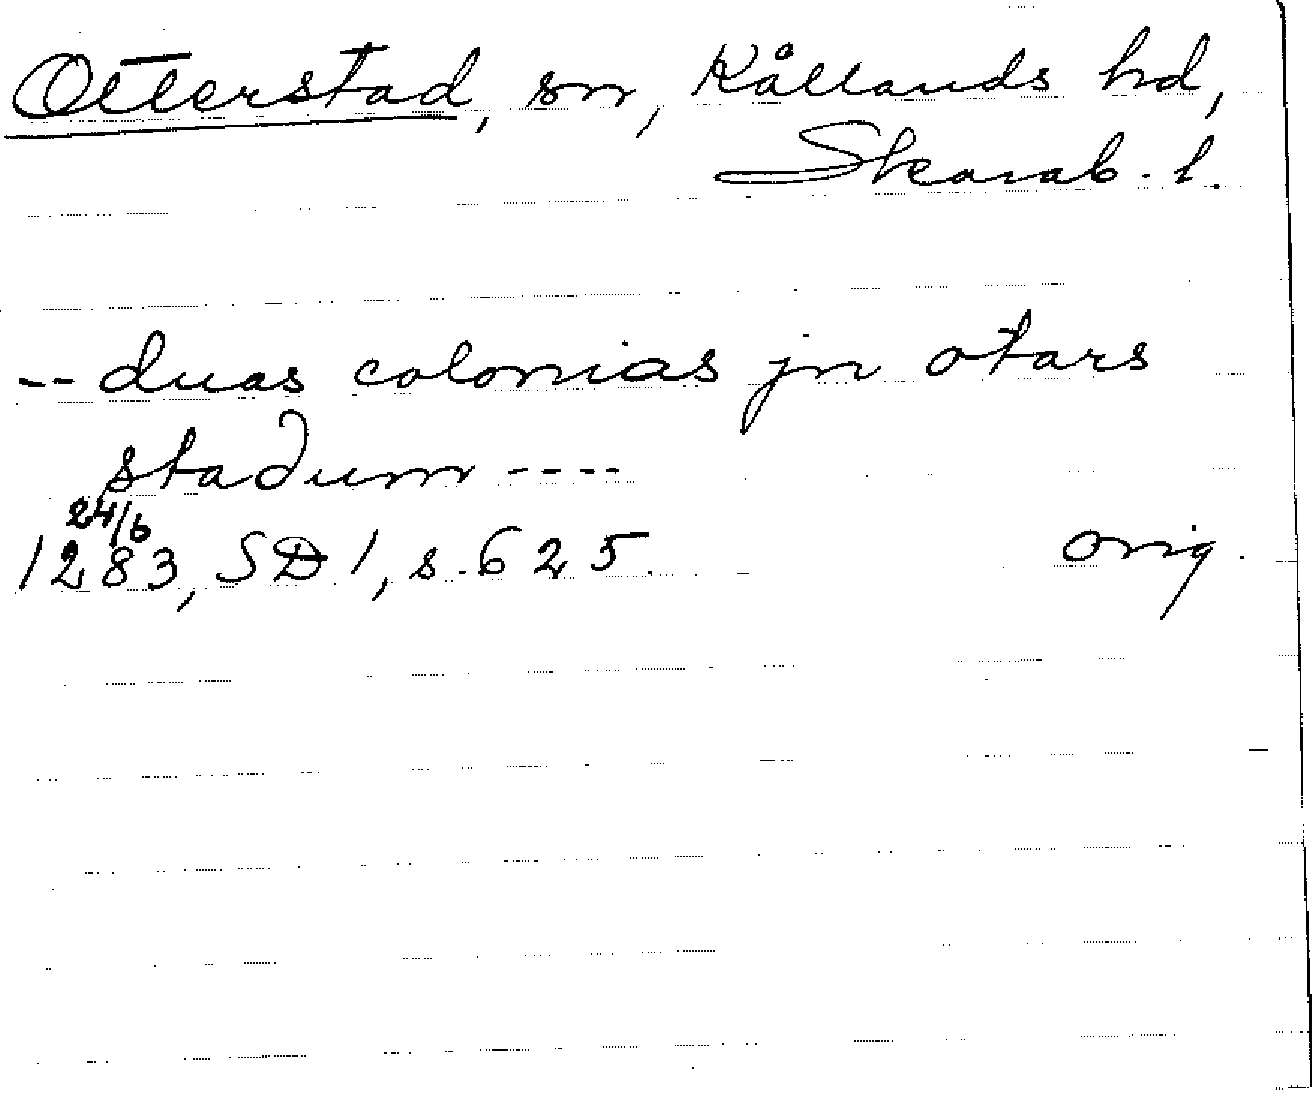 Otterstad, sn, Kållands hd,
Skarab. l.
-- duas colonias jn otars
stadum ----
24/6
1283, SD 1, s. 625 orig.